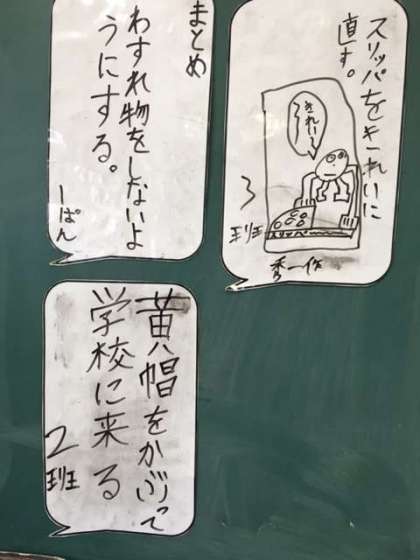 スリッパをきれいに
直す。
きれい〜
スリッパ
3班
秀一作
まとめ
わすれ物をしないよ
うにする。
1ぱん
黄帽をかぶって
学校に来る
2班